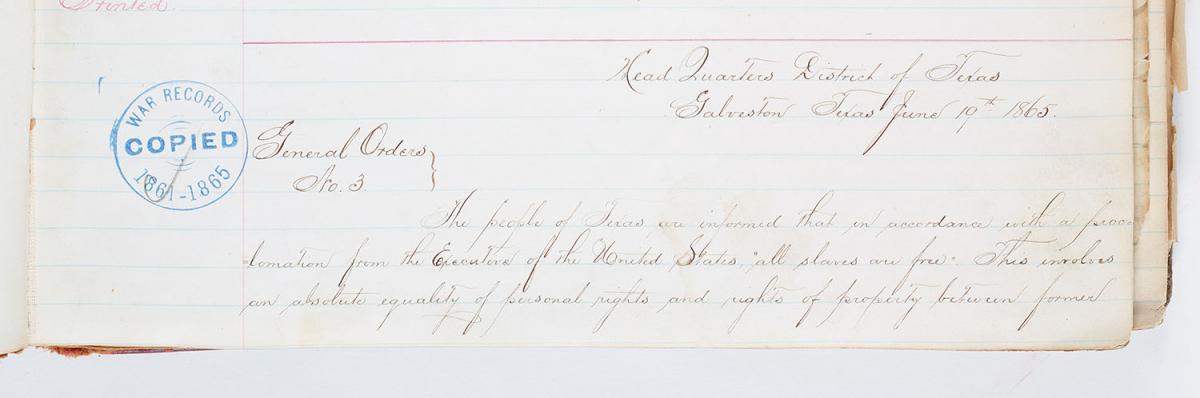 Printed.
Head Quarters District of Texas
Galveston Texas June 19th 1865.
WAR RECORDS
COPIED
1861-1865
General Orders
No. 3.
The people of Texas are informed that in accordance with a proc-
-lamation from the Executive of the United States, "all slaves are free". This involves
an absolute equality of personal rights and rights of property between former